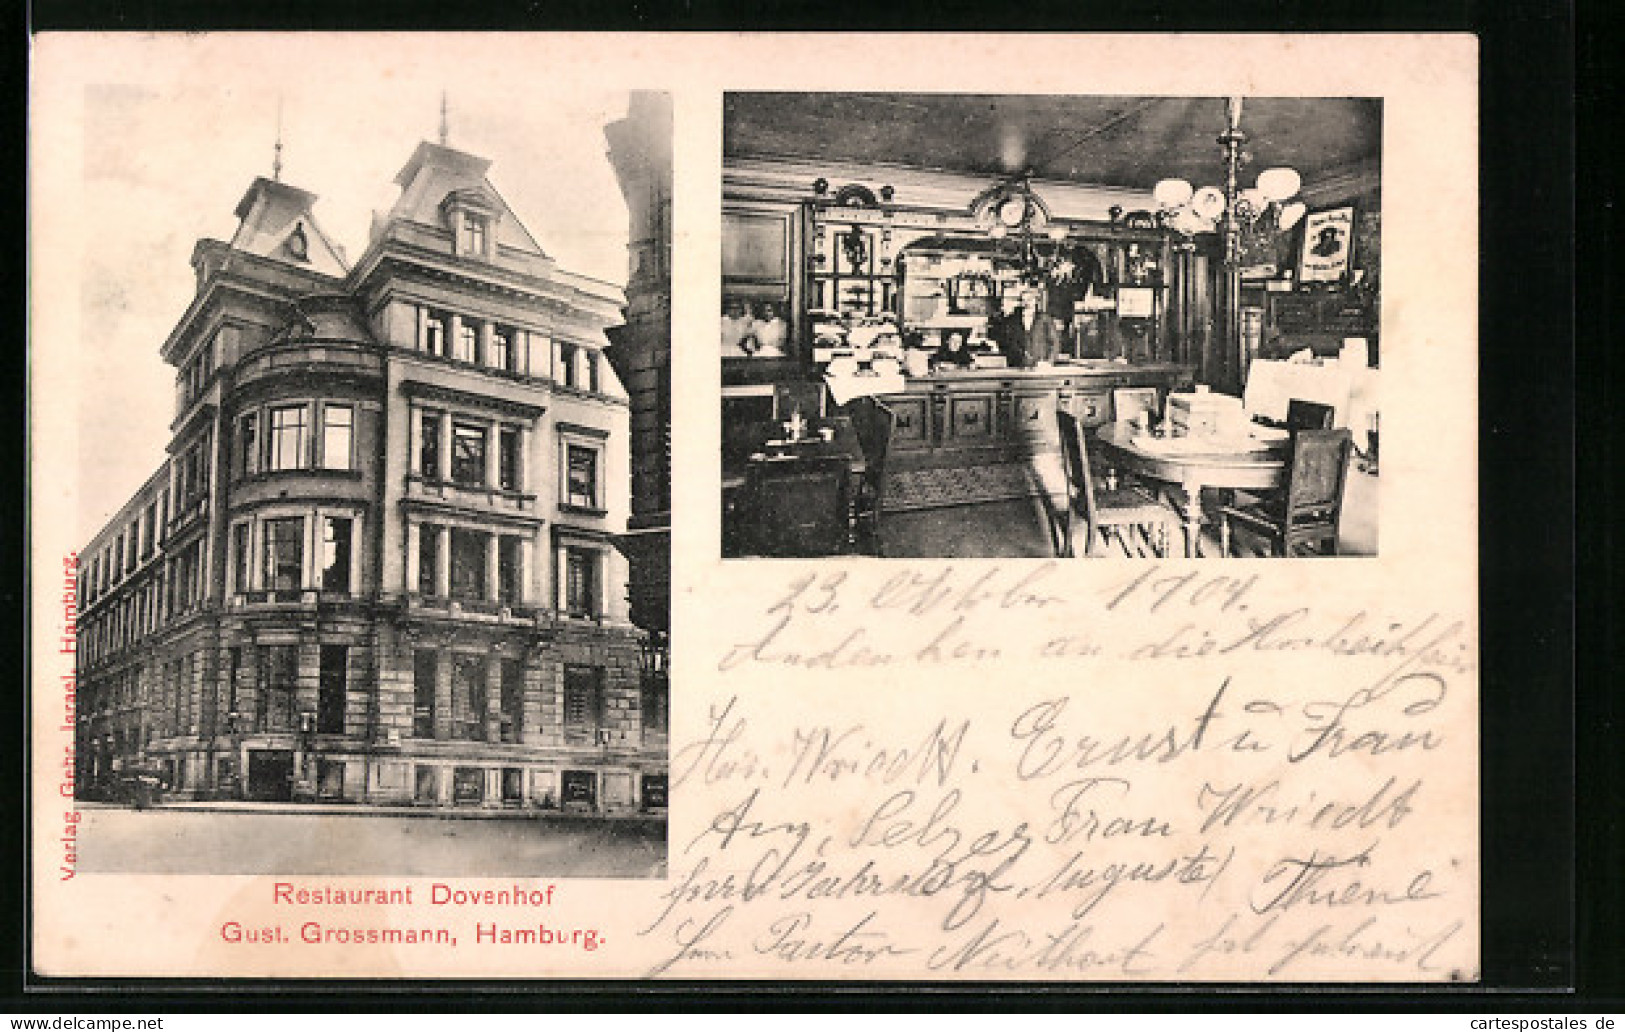 Verlag Gebr. Israel, Hamburg.
Restaurant Dovenhof
Gust. Grossmann, Hamburg.
23. Oktober 1904.
Andenken an die Hochzeitsfeier
Wriedt. Ernst u Frau
Aug. Selzer Frau Wriedt
Auguste Thiene
Herr Pastor
cartespostales de